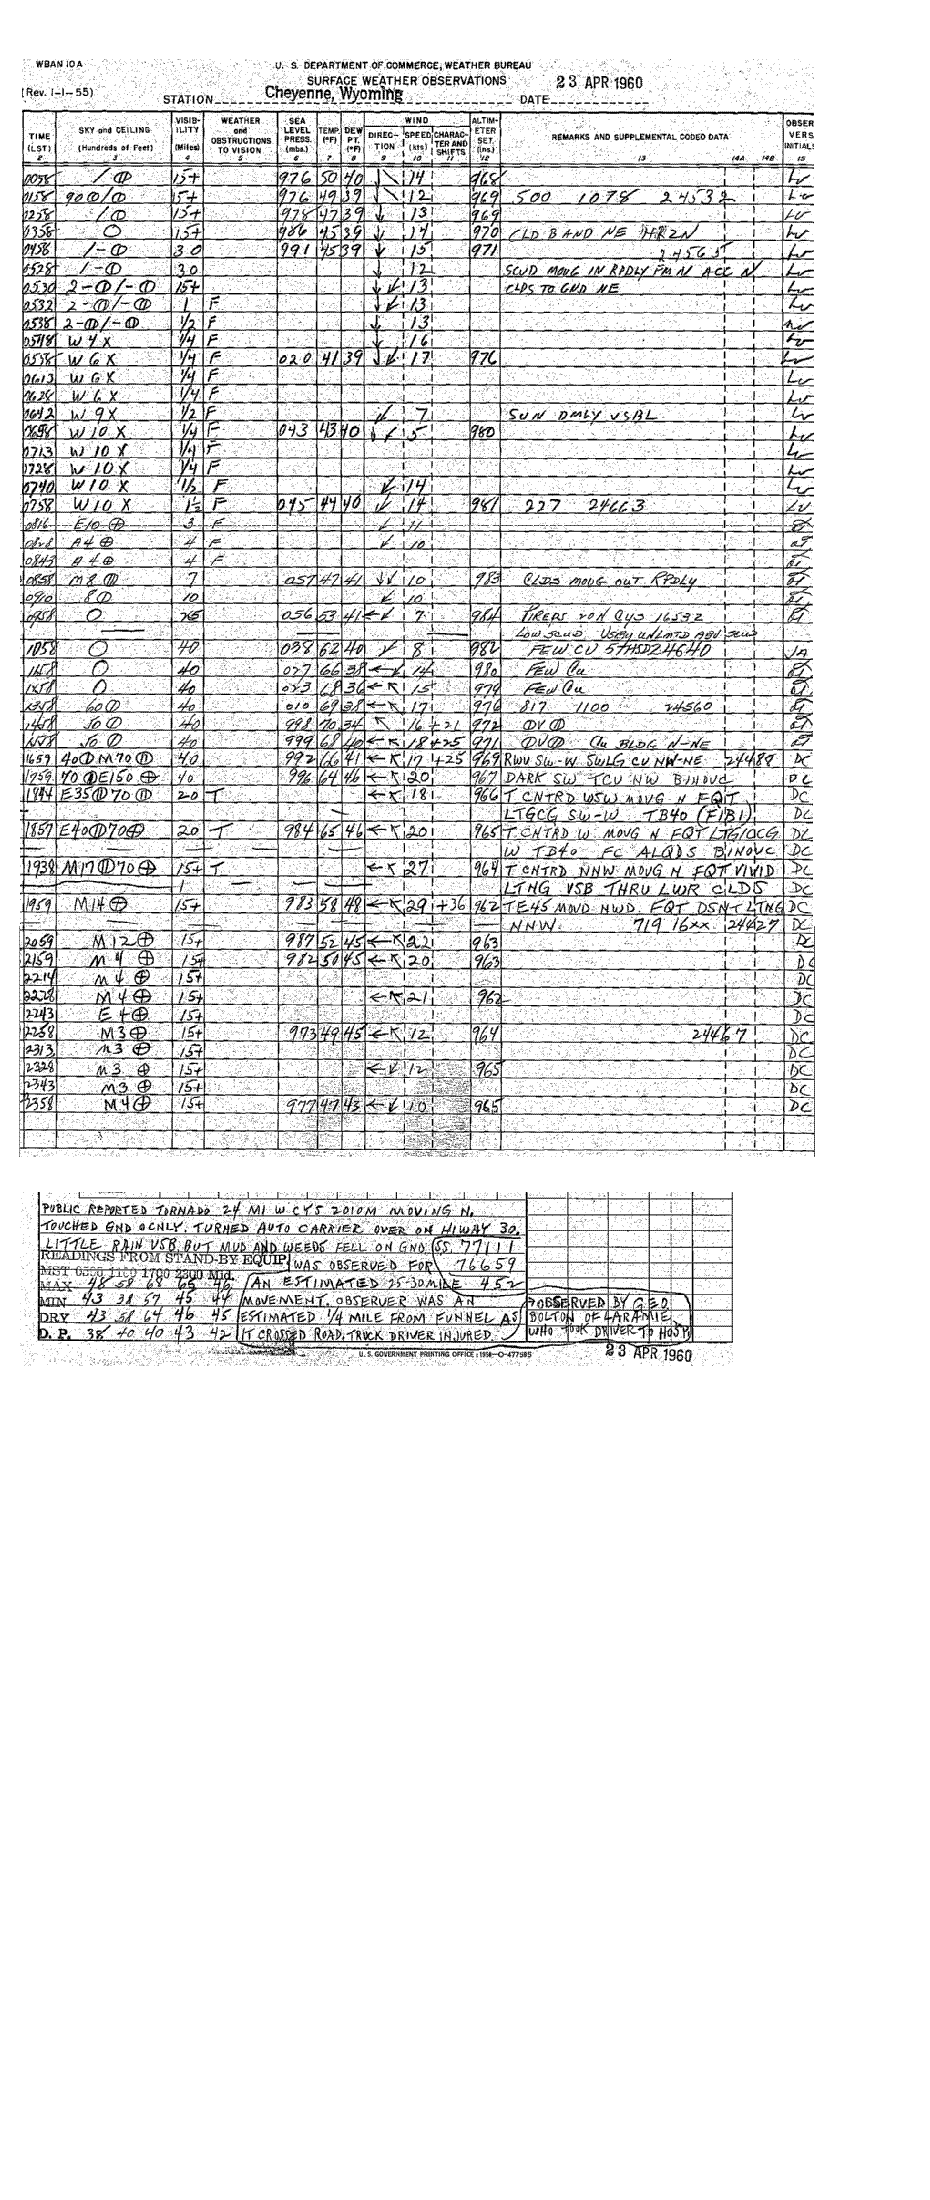 WBAN 10 A
U. S. DEPARTMENT OF COMMERCE, WEATHER BUREAU
(Rev. 1-1-55)
SURFACE WEATHER OBSERVATIONS
STATION Cheyenne, Wyoming DATE 23 APR 1960
TIME (LST) SKY and CEILING (Hundreds of Feet) VISIBILITY (Miles) WEATHER and OBSTRUCTIONS TO VISION SEA LEVEL PRESS. (mbs.) TEMP. (°F) DEW PT. (°F) WIND DIRECTION SPEED (kts) CHARACTER AND SHIFTS ALTIMETER SET. (ins) REMARKS AND SUPPLEMENTAL CODED DATA OBSERVERS INITIALS
2 3 4 5 6 7 8 9 10 11 12 13 14A 14B 15
0058 / ⦶ 15+ 976 50 40 ↓↘ 14 968
0158 90⦶/⦶ 15+ 976 49 39 ↓↘ 12 969 500 1078 24532
1258 /⦶ 15+ 978 47 39 ↓ 13 969
0358 ○ 15+ 986 45 39 ↓ 14 970 CLD BAND NE HRZN
0458 /-⦶ 30 991 45 39 ↓ 15 971 24565
0528 /-⦶ 30 ↓ 12 SCUD MOVG IN RPDLY FM N ACC N
0530 2-⦶/-⦶ 15+ ↓↙ 13 CLDS TO GND NE
0532 2-⦶/-⦶ 1 F ↓↙ 13
0538 2-⦶/-⦶ 1/2 F ↓ 13
0548 W4X 1/4 F ↓ 16
0558 W6X 1/4 F 020 41 39 ↓↙ 17 976
0613 W6X 1/4 F
0628 W6X 1/4 F
0642 W9X 1/2 F ↙ 7 SUN DMLY VSBL
0658 W10X 1/4 F 043 43 40 ↓↙ 5 980
0713 W10X 1/4 F
0728 W10X 1/4 F
0740 W10X 1/2 F ↙ 14
0758 W10X 1½ F 045 44 40 ↙ 14 981 227 24663
0816 E10⊕ 3 F ↙ 11
0828 A4⊕ 4 F ↙ 10
0843 A4⊕ 4 F
0858 M8⦶ 7 057 47 41 ↓↙ 10 983 CLDS MOVG OUT RPDLY
0910 8⦶ 10 ↙ 10
0958 ○ 056 53 41 ←↙ 7 984 PIREPS 16532
LOW SCUD UNLMTD ABV SCUD
1058 ○ 40 038 62 40 ↙ 8 982 FEW CU 24640 JA
1158 ○ 40 027 66 38 ←↙ 14 980 FEW Cu
1258 ○ 40 023 68 36 ←↖ 15 979 FEW Cu
1358 60⦶ 40 010 69 38 ←↖ 17 976 817 1100 24560
1458 50⦶ 40 998 70 34 ↖ 16 +21 972 ⦶V⦶
1558 50⦶ 40 999 68 40 ←↖ 18 +25 971 ⦶V⦶ Cu BLDG N-NE
1659 40⦶M70⦷ 40 992 66 41 ←↖ 17 +25 969 RWU SW-W SWLG CU NW-NE 24488 DC
1759 40⦶E150⊕ 40 996 64 46 ←↖ 20 967 DARK SW TCU NW BINOVC DC
1844 E35⦶70⦷ 20 T ←↖ 18 966 T CNTRD WSW MOVG N FQT DC
LTGCG SW-W TB40 (FIBI) DC
1857 E40⦶70⊕ 20 T 984 65 46 ←↖ 20 965 T CNTRD W MOVG N FQT LTGICCG DC
W TB40 FC ALQDS BINOVC DC
1938 M17⦷70⊕ 15+ T ←↖ 27 964 T CNTRD NNW MOVG N FQT VIVID DC
LTNG VSB THRU LWR CLDS DC
1959 M14⊕ 15+ 983 58 48 ←↖ 29 +36 962 TE45 MOVD NWD FQT DSNT LTNG DC
NNW. 719 16xx 24427 DC
2059 M12⊕ 15+ 987 52 45 ←↖ 22 963 DC
2159 M4⊕ 15+ 982 50 45 ←↖ 20 963 DC
2214 M4⊕ 15+ DC
2228 M4⊕ 15+ ←↖ 21 962 DC
2243 E4⊕ 15+ DC
2258 M3⊕ 15+ 973 49 45 ←↖ 12 964 24467 DC
2313 M3⊕ 15+ DC
2328 M3⊕ 15+ ←↙ 12 965 DC
2343 M3⊕ 15+ DC
2358 M4⊕ 15+ 977 47 43 ←↙ 10 965 DC
PUBLIC REPORTED TORNADO 24 MI W CYS 2010M MOVING N.
TOUCHED GND OCNLY. TURNED AUTO CARRIER OVER ON HIWAY 30.
LITTLE RAIN VSB BUT MUD AND WEEDS FELL ON GND SS. 77111
READINGS FROM STAND-BY EQUIP WAS OBSERVED FOR 76659
MST 0500 1100 1700 2300 Mid.
MAX 48 58 68 65 46 AN ESTIMATED 25-30 MILE 452
MIN 43 38 57 45 44 MOVEMENT. OBSERVER WAS AN OBSERVED BY GEO.
DRY 43 58 64 46 45 ESTIMATED 1/4 MILE FROM FUNNEL AS BOLTON OF LARAMIE
D. P. 38 40 40 43 42 IT CROSSED ROAD. TRUCK DRIVER INJURED. WHO TOOK DRIVER TO HOSP
U. S. GOVERNMENT PRINTING OFFICE : 1958-O-477595
23 APR 1960